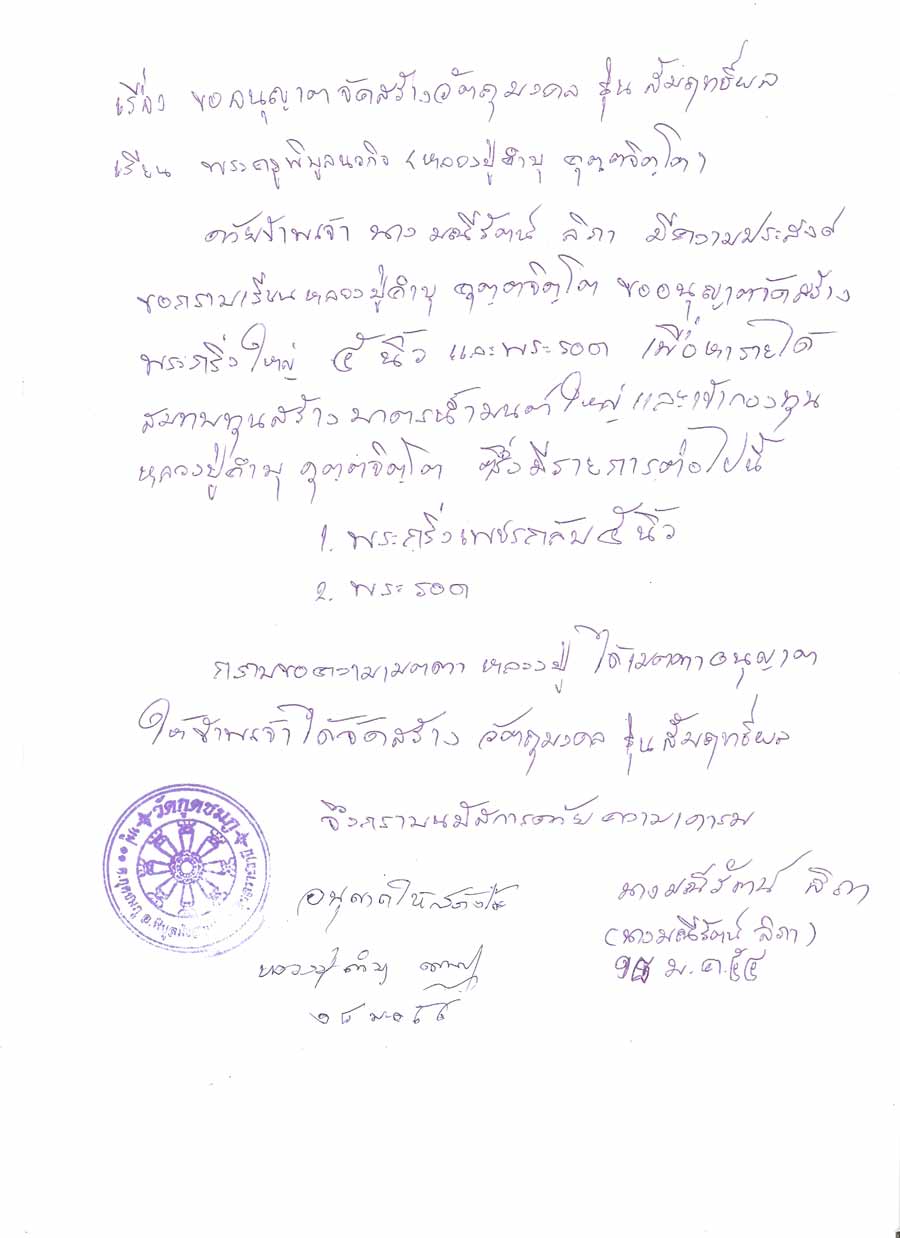 เรื่อง ขออนุญาตจัดสร้างวัตถุมงคล รุ่น สัมฤทธิ์ผล
เรียน พระครูพิบูลนวกิจ (หลวงปู่คำบุ คุตฺตจิตฺโต)
ด้วยข้าพเจ้า นาง มณีรัตน์ ลิภา มีความประสงค์
ขอกราบเรียนหลวงปู่คำบุ คุตฺตจิตฺโต ขออนุญาตจัดสร้าง
พระกริ่งใหญ่ ๕ นิ้ว และพระรอด เพื่อหารายได้
สมทบทุนสร้าง บาตรน้ำมนต์ใหญ่ และเข้ากองทุน
หลวงปู่คำบุ คุตฺตจิตฺโต ซึ่งมีรายการต่อไปนี้
1. พระกริ่งเพชรกลับ ๕ นิ้ว
2. พระรอด
กราบขอความเมตตา หลวงปู่ ได้เมตตาอนุญาต
ให้ข้าพเจ้าได้จัดสร้าง วัตถุมงคล รุ่น สัมฤทธิ์ผล
จึงกราบนมัสการด้วยความเคารพ
วัดกุดชมภู
ต.กุดชมภู อ.พิบูล
อนุญาตให้สร้างได้
นางมณีรัตน์ ลิภา
(นางมณีรัตน์ ลิภา)
หลวงปู่คำบุ
ม.ค. ๕๔
๒๘ ม.ค ๕๔